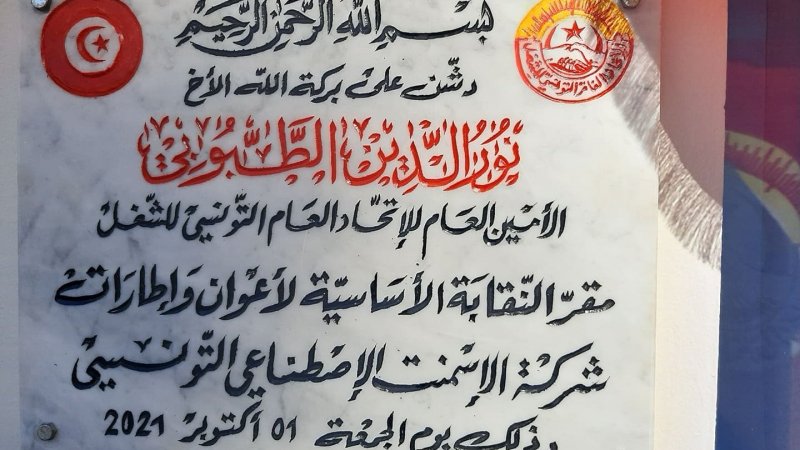 بِسْمِ اللهِ الرَّحْمٰنِ الرَّحِيْمِ
دشّن على بركة الله الأخ
نُورُ الدِّين الطَّبُّوبِي
الأمين العام للإتحاد العام التونسي للشغل
مقرّ النّقابة الأساسيّة لأعوان وَإطارات
شركة الإسمنت الإصطناعي التّونسي
وذلك يوم الجمعة 01 أكتوبر 2021